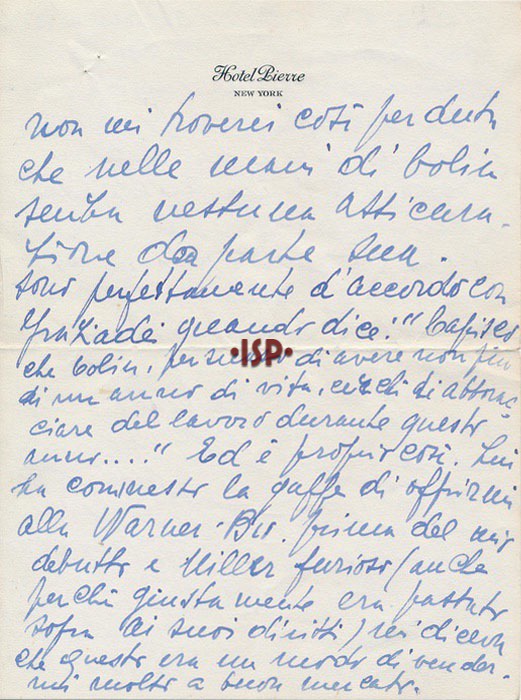 Hotel Pierre
NEW YORK
non mi troverei così perduta
che nelle mani di Colin
senza nessuna assicura-
zione da parte sua.
Sono perfettamente d'accordo con
Graziadei quando dice: "Capisco
che Colin, pensando di avere non più
di un anno di vita, cerchi di abbrac-
ciare del lavoro durante questo
anno...." Ed è proprio così. Lui
ha commesso la gaffe di offrirmi
alla Warner-Bro. prima del mio
debutto e Miller furioso (anche
perché giustamente era passato
sopra ai suoi diritti) mi diceva
che questo era un modo di vender-
mi molto a buon mercato.
·ISP·